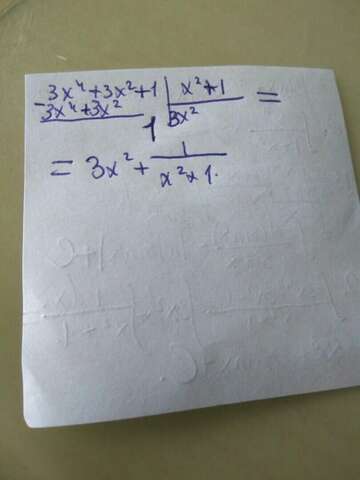 3x⁴+3x²+1 | x²+1 =
-3x⁴+3x² | 3x²
1
= 3x² + 1/(x²+1)